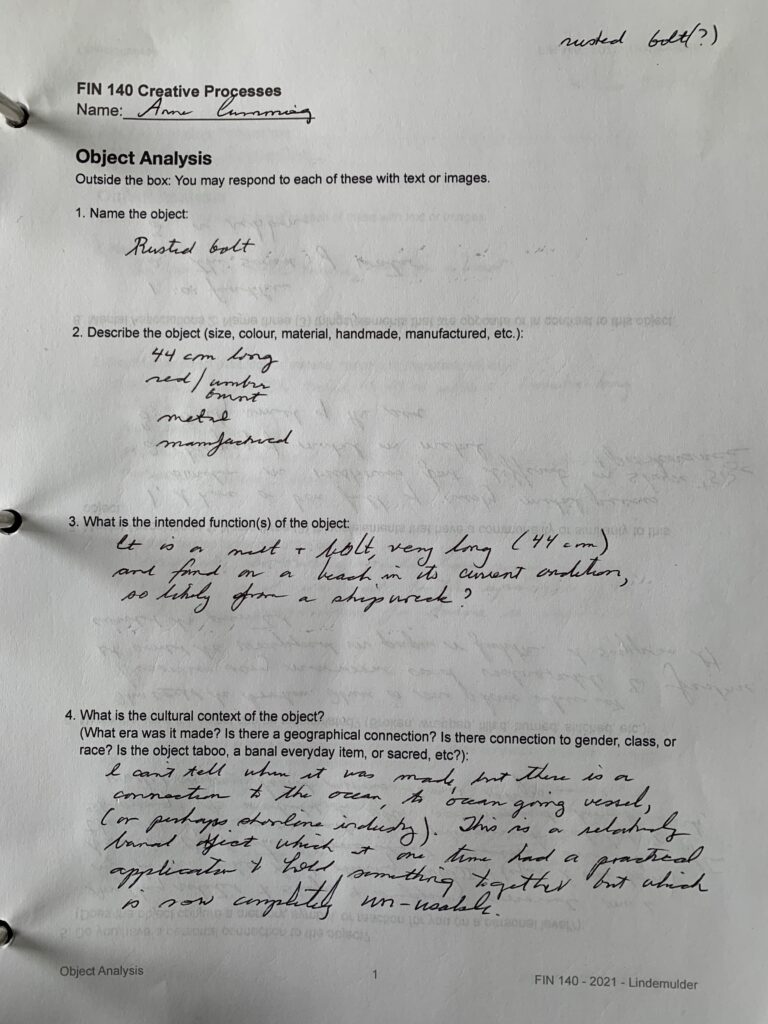 rusted bolt(?)
FIN 140 Creative Processes
Name: Anne Cumming
Object Analysis
Outside the box: You may respond to each of these with text or images.
1. Name the object:
Rusted bolt
2. Describe the object (size, colour, material, handmade, manufactured, etc.):
44 cm long
red/umber
burnt
metal
manfactured
3. What is the intended function(s) of the object:
It is a nut + bolt, very long (44 cm)
and found on a beach in its current condition,
so likely from a shipwreck?
4. What is the cultural context of the object?
(What era was it made? Is there a geographical connection? Is there connection to gender, class, or
race? Is the object taboo, a banal everyday item, or sacred, etc?):
I can't tell when it was made, but there is a
connection to the ocean, to ocean going vessel,
(or perhaps shoreline industry). This is a relatively
banal object which at one time had a practical
application to hold something together but which
is now completely un-usable.
Object Analysis
1
FIN 140 - 2021 - Lindemulder